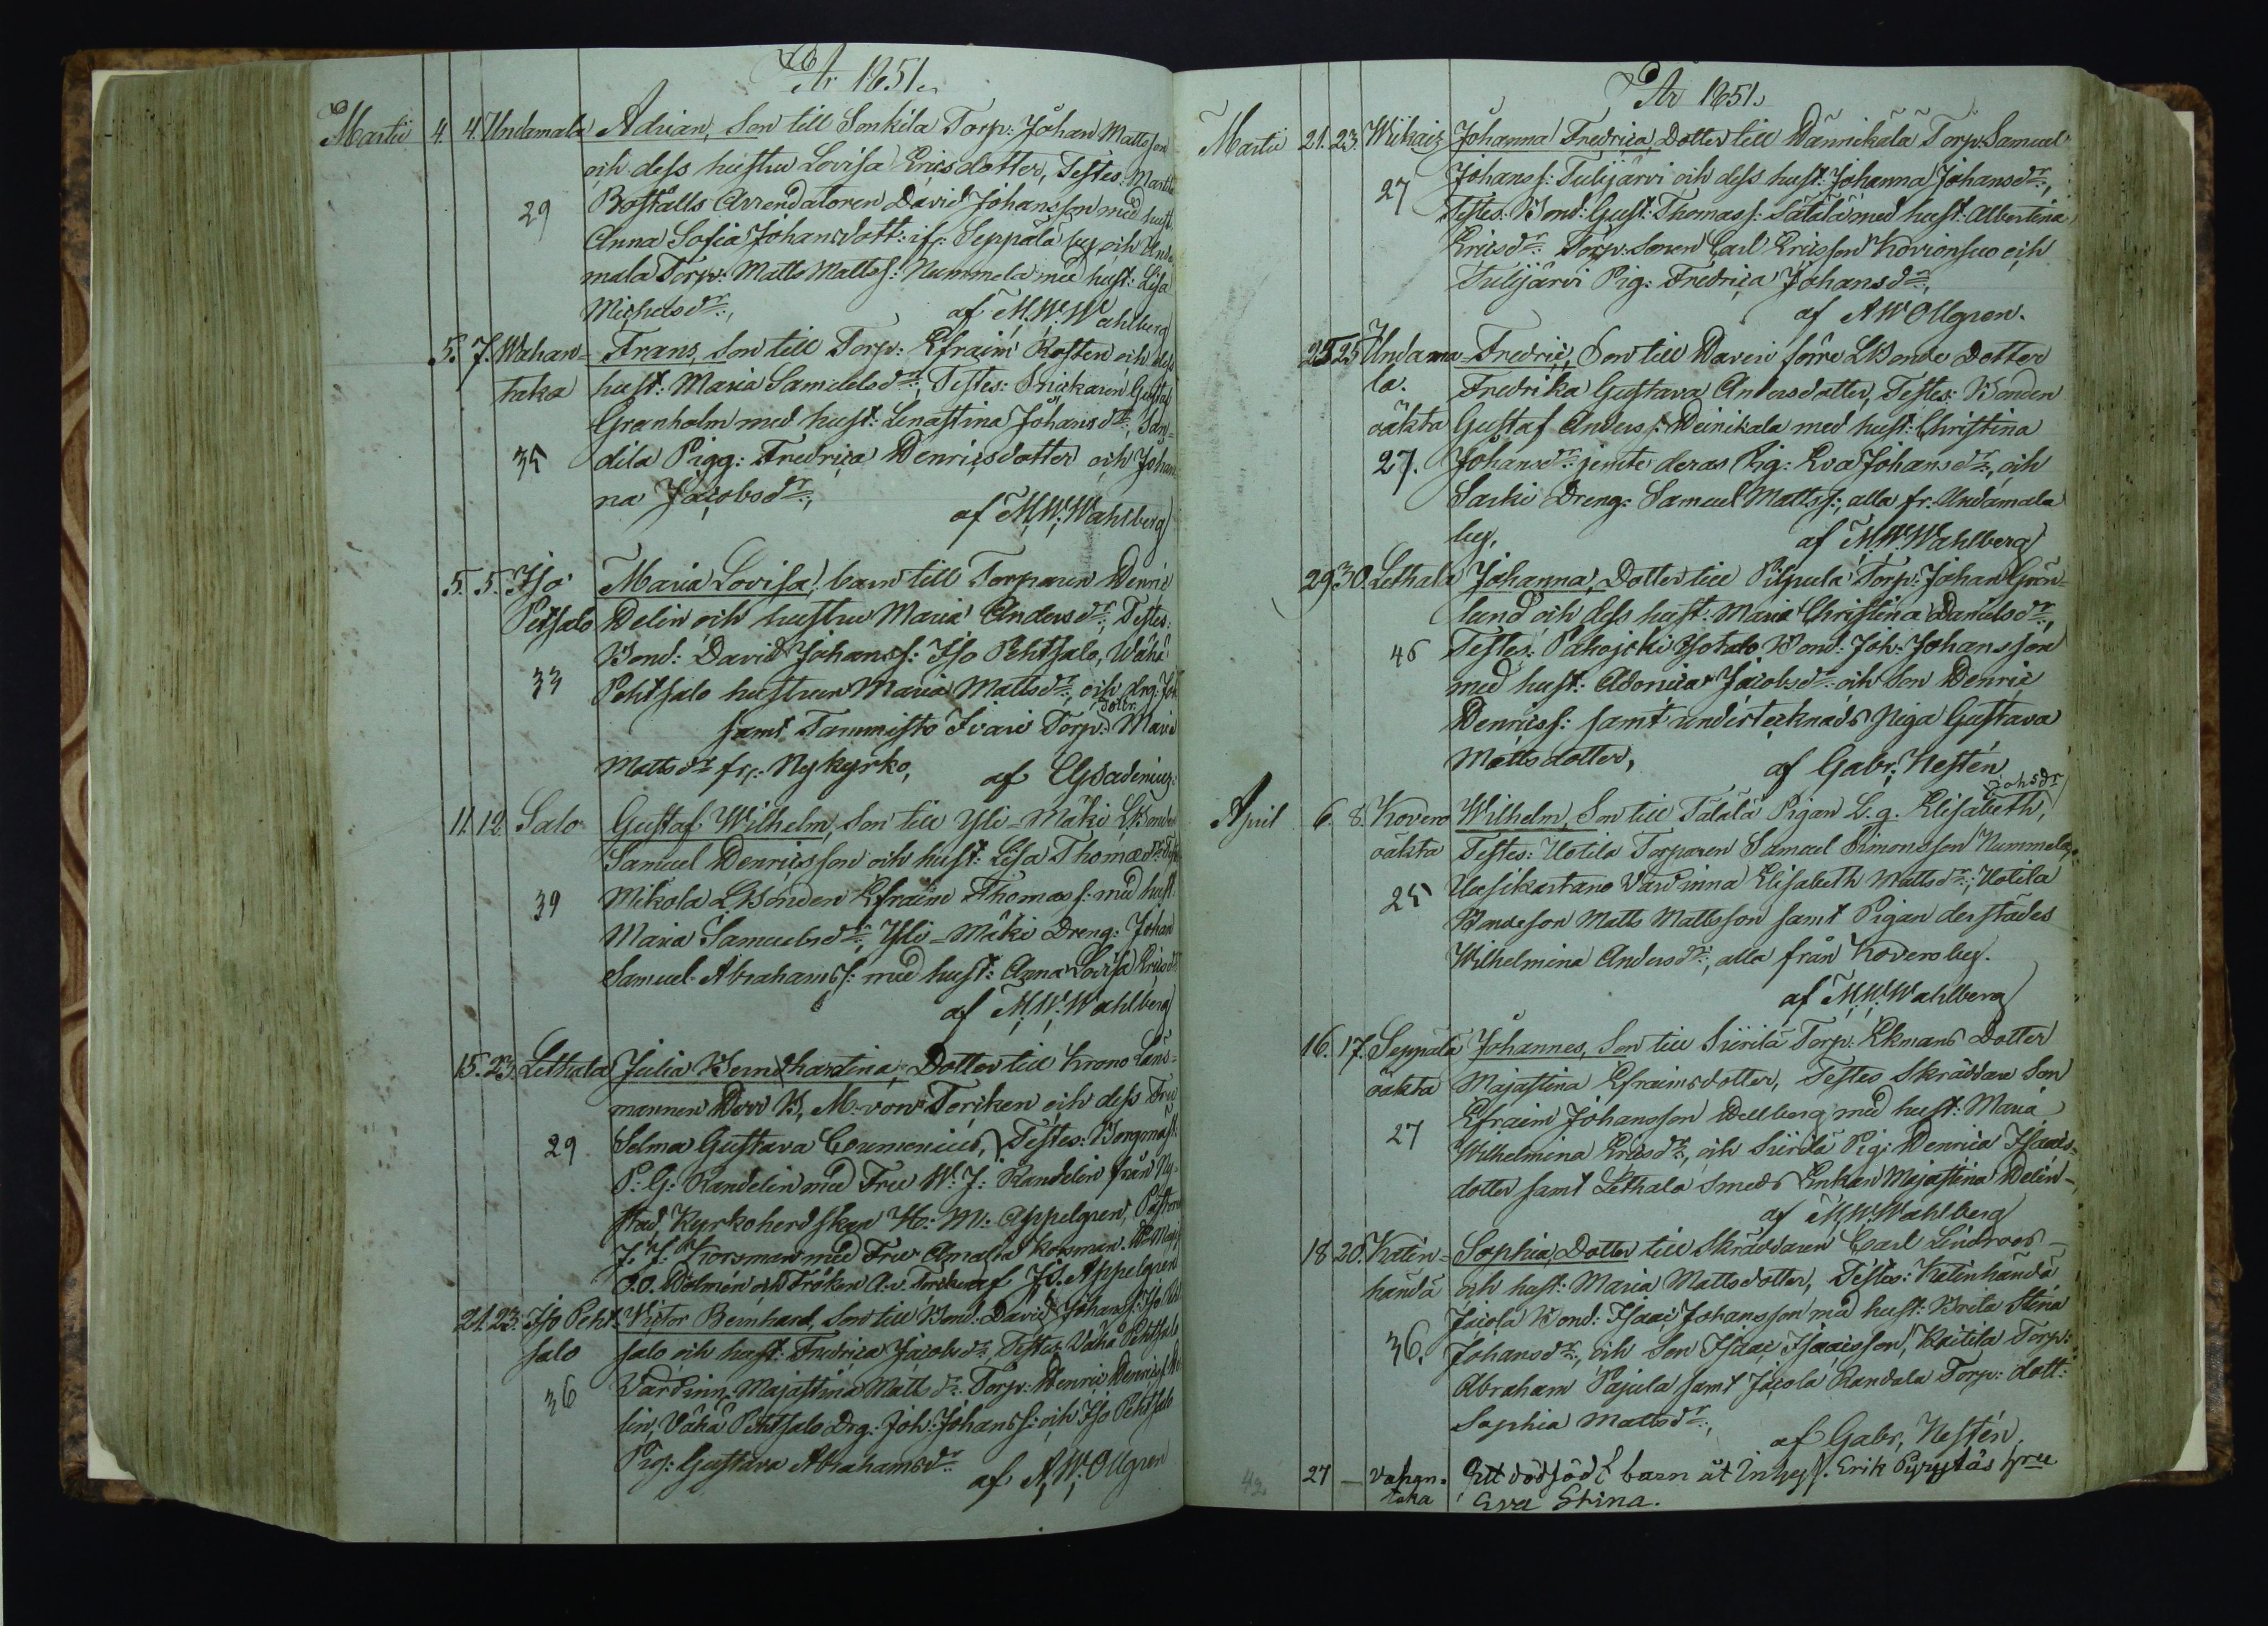 År 1851.
Martii 4. 4. Undamala Adrian, Son till Sonkila Torp: Johan Mattsson
och dess hustru Lovisa Ericsdotter, Testes: Marttila
29 Boställs Arrendatoren David Johansson med hust.
Anna Sofia Johansdott: ifr: Seppälä by, och Unda-
mala Torp: Matts Mattss: Nummela med hust: Lisa
Michelsdr:, af M.W. Wahlberg
5. 7. Wahan- Frans, Son till Torp: Efraim Rosten och dess
taka hust: Maria Samuelsdr:, Testes: Snickaren Gustaf
Granholm med hust: Lenastina Johansdr:, San-
35 dila Pigg: Fredrica Henricsdotter och Johan-
na Jacobsdr:, af M.W. Wahlberg
5. 5. Iso Maria Lovisa, barn till Torparen Henric
Pettsalo Delin och hustru Maria Andersdr:, Testes:
Bond: David Johanss: Iso Pehtsalo, Wähä
33 Pehtsalo hustrun Maria Mattsdr:, och drg: Joh
samt Tammisto Ivari Torp: dottr. Maria
Mattsdr fr: Nykyrko, af CGSadenius.
11. 12. Salo Gustaf Wilhelm, Son till Yli-Mäki LBonden
Samuel Henricsson och hust: Lisa Thomædr: Testes
39 Mikola LBonden Efraim Thomass: med hust.
Maria Samuelsdr:, Yli-Mäki Dreng: Johan
Samuel Abrahamss: med hust: Anna Lovisa Ericsdr
af M.W. Wahlberg
15. 23. Lethala Julia Berndhardina, Dotter till Krono Läns-
mannen Herr B. M. von Törcken och dess Fru
29 Selma Gustava Coumenius, Testes: Borgmäst:
P: G: Randelin med Fru W: J: Randelin från Ny-
stad, Kyrkoherdskan H: M: Appelgren, Pastorn
J. J. Korsman med Fru Amalia Korsman,
O.O. Holmén och Fröken A.v. Törcken af J.S. Appelgren
21. 23. Iso Peht- Victor Bernhard, Son till Bond: David Johanss: Iso Peht
salo salo och hust: Fredrica Jacobsdr: Testes: Vähä Pehtsalo
36 Värdinn: Majastina Mattsdr: Torp: Henric Henricss: De-
lin, Vähä Pehtsalo Drg: Joh: Johanss: och Iso Pehtsalo
Pig: Gustava Abrahamsdr: af A.W. Ollgren
År 1851.
Martii 21. 23. Wiikaiz Johanna Fredrica, Dotter till Hännikälä Torp. Samuel
27 Johanss: Tulijärvi och dess hust: Johanna Johansdr:,
Testes: Bond: Gust: Thomass: Sätälä med hust: Albertina
Ericsdr: Torp. Sonen Carl Ericsson Kovionsuo och
Tulijärvi Pig: Fredrica Johansdr:,
af AW Ollgren.
25 25 Undama- Fredric, Son till Haveri förre LBonde Dotter
la. Fredrika Gustava Andersdotter, Testes: Bonden
oäkta Gustaf Anderss: Heinikala med hust: Christina
27. Johansdr: jemte deras Pig: Eva Johansdr:, och
Saski Dreng: Samuel Mattss:, alla fr. Undamala
by, af M.W. Wahlberg
29 30. Lethala Johanna, Dotter till Pilpula Torp: Johan Grön-
lund och dess hust: Maria Christina Danielsdr:,
46 Testes: Pahojoki Isotalo Bond: Joh: Johansson
med hust: Adorica Jacobsdr: och Son Henric
Henricss: samt undertecknads Piga Gustava
Mattsdotter, af Gabr. Hestén
April 6. 8. Kovero Wilhelm, Son till Tälälä Pigan L.g. Elisabeth, Johsdr
oäkta Testes: Uotila Torparen Samuel Simonsson Nummela,
25 Uusikartano Värdinna Elisabeth Mattsdr:, Uotila
Bondeson Matts Mattsson samt Pigan derstädes
Wilhelmina Andersdr:, alla från Kovero by.
af M.W. Wahlberg
16. 17. Seppälä Johannes, Son till Siirilä Torp: Ekmans Dotter
oäkta Majastina Efraimsdotter, Testes Skräddare Son
27 Efraim Johansson Hellberg med hust: Maria
Wilhelmina Ericsdr:, och Siirilä Pig: Henrica Isaacs-
dotter samt Lethala Smeds Enkan Majastina Helin-
af M.W. Wahlberg
18 20. Katin- Sophia, Dotter till Skräddaren Carl Lindroos
händä och hust: Maria Mattsdotter, Testes: Katinhändä
Jaiola Bond: Isaac Johansson med hust: Brita Stina
36. Johansdr:, och Son Isaac Isaacsson, Knitila Torp:
Abraham Pajula samt Jaiola Randala Torp: dott:
Sophia Mattsdr:, af Gabr. Hestén.
27 — Vahan- Ett dödfödt barn åt Inhys. Erik Pyrytäs hru
taka Eva Stina.
42.